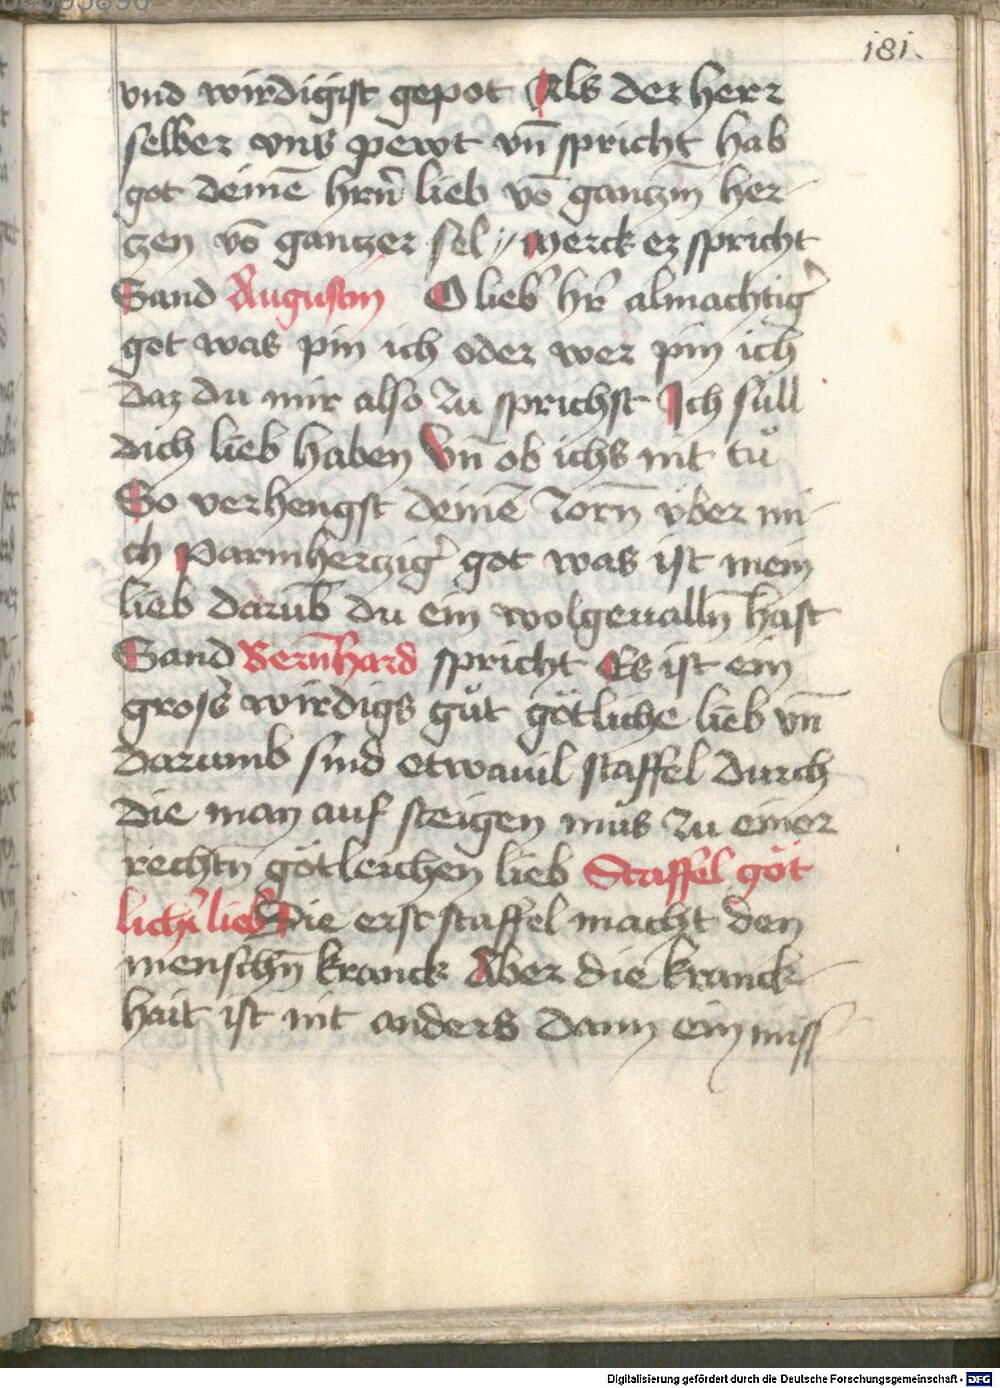 181.
vnd wirdigist gepot Als der herr
selber vns pewt vn̄ spricht hab
got deinē hrn̄ lieb vō gantzm̄ her-
czen vō gantzer sel // Merck ez spricht
Sand Augustin O lieb' hr̄ almachtig'
got was pin ich oder wer pin ich
daz du mir also zu sprichst Ich süll
dich lieb haben Vn̄ ob ichs nit tů
So verhengst deinē zorn̄ vber mi-
ch Parmherczig' got was ist mein
lieb darūb du ein wolgeualln̄ hast
Sand Bern̄hard spricht Es ist ein
gross' wirdigs gůt götliche lieb vn̄
darumb sind etwauil staffel durch
die man auf steigen mus zu einer
rechtn̄ götleichen lieb Staffel göt
lich' lieb Die erst staffel macht den
menschn̄ kranck Aber die kranck-
hait ist nit anders dann ein miss
Digitalisierung gefördert durch die Deutsche Forschungsgemeinschaft - DFG